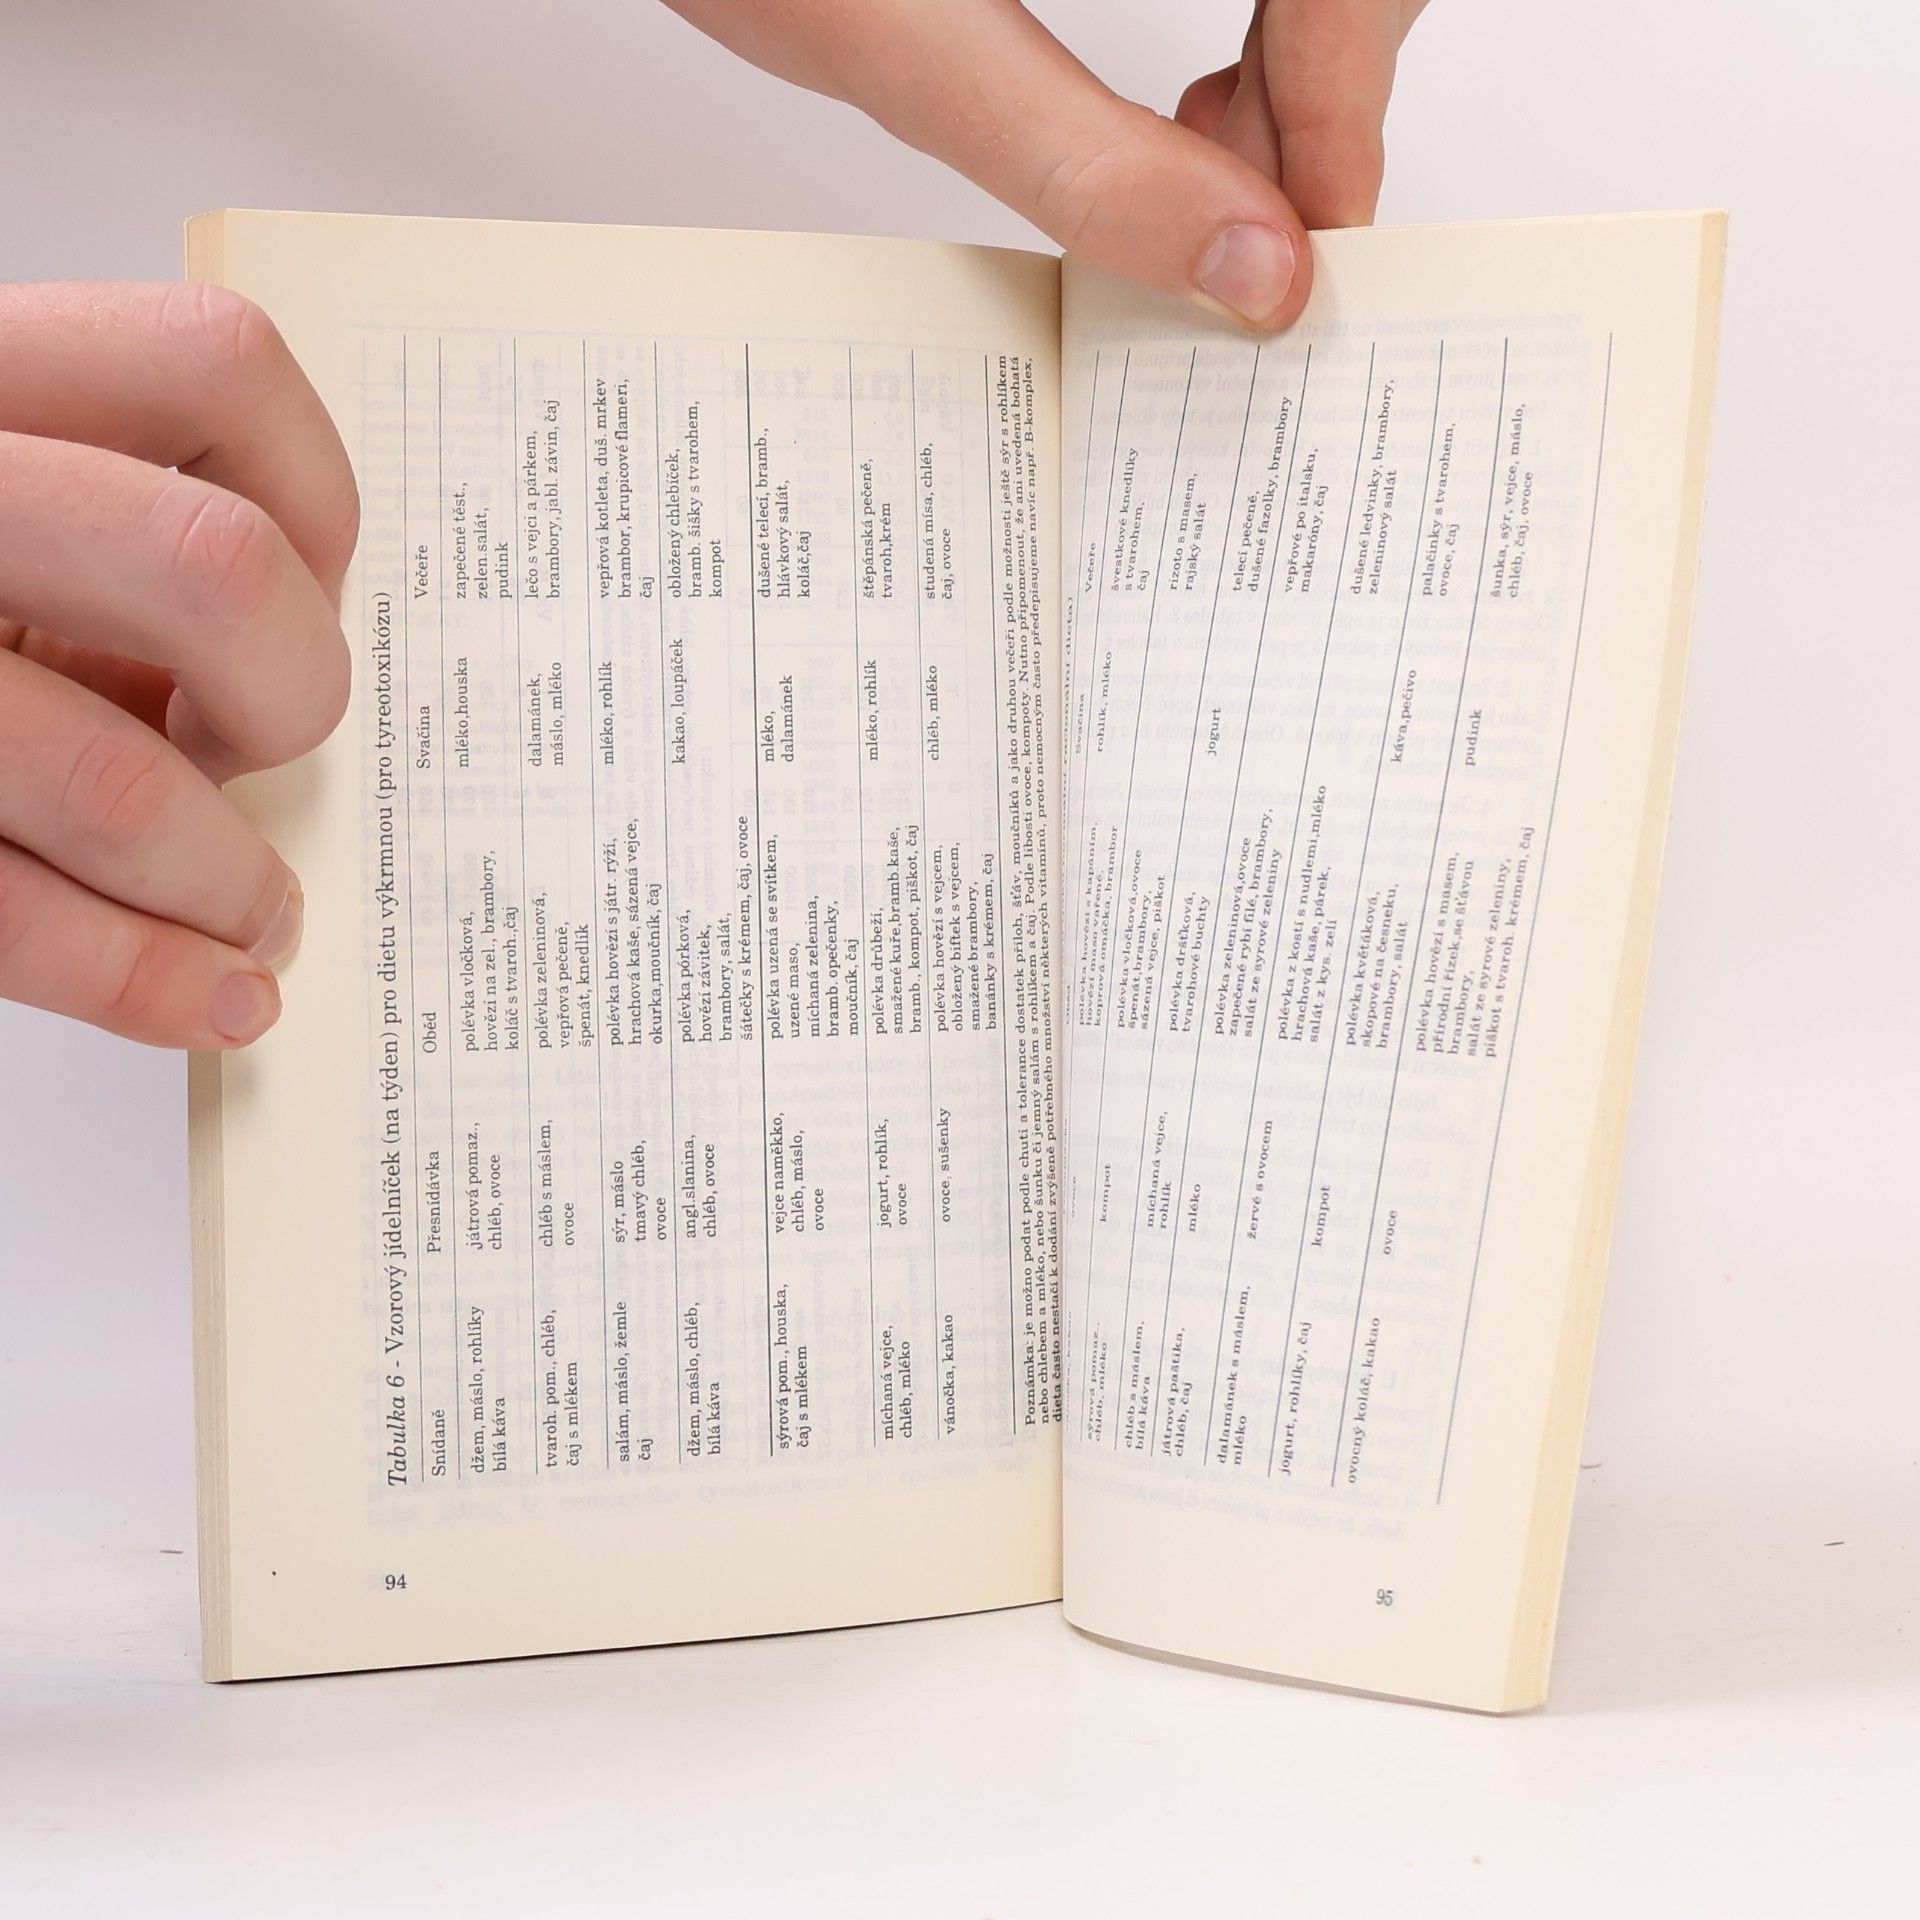 Tabulka 6 - Vzorový jídelníček (na týden) pro dietu výkrmnou (pro tyreotoxikózu)
Snídaně Přesnídávka Oběd Svačina Večeře
džem, máslo, rohlíky játrová pomaz., polévka vločková, mléko,houska zapečené těst.,
bílá káva chléb, ovoce hovězí na zel., brambory, zelen.salát,
koláč s tvaroh.,čaj pudink
tvaroh. pom., chléb, chléb s máslem, polévka zeleninová, dalamánek, lečo s vejci a párkem,
čaj s mlékem ovoce vepřová pečeně, máslo, mléko brambory, jabl. závin, čaj
špenát, knedlík
salám, máslo, žemle sýr, máslo polévka hovězí s játr. rýží, mléko, rohlík vepřová kotleta, duš. mrkev
čaj tmavý chléb, hrachová kaše, sázená vejce, brambor, krupicové flameri,
ovoce okurka,moučník, čaj čaj
džem, máslo, chléb, angl.slanina, polévka pórková, kakao, loupáček obložený chlebíček,
bílá káva chléb, ovoce hovězí závitek, bramb. šišky s tvarohem,
brambory, salát, kompot
šátečky s krémem, čaj, ovoce
sýrová pom., houska, vejce naměkko, polévka uzená se svítkem, mléko, dušené telecí, bramb.,
čaj s mlékem chléb, máslo, uzené maso, dalamánek hlávkový salát,
ovoce míchaná zelenina, koláč,čaj
bramb. opečenky,
moučník, čaj
míchaná vejce, jogurt, rohlík, polévka drůbeží, mléko, rohlík štěpánská pečeně,
chléb, mléko ovoce smažené kuře,bramb.kaše, tvaroh,krém
bramb., kompot, piškot, čaj
vánočka, kakao ovoce, sušenky polévka hovězí s vejcem, chléb, mléko studená mísa, chléb,
obložený biftek s vejcem, čaj, ovoce
smažené brambory,
banánky s krémem, čaj
Poznámka: je možno podat podle chuti a tolerance dostatek příloh, šťáv, moučníků a jako druhou večeři podle možnosti ještě sýr s rohlíkem
nebo chlebem a mléko, nebo šunku či jemný salám s rohlíkem a čaj. Podle libosti ovoce, kompoty. Nutno připomenout, že ani uvedená bohatá
dieta často nestačí k dodání zvýšeně potřebného množství některých vitamínů, proto nemocným často předepisujeme navíc např. B-komplex,
94
Svačina Večeře
ovoce polévka hovězí s kapáním, rohlík, mléko švestkové knedlíky
hovězí maso vařené, s tvarohem,
koprová omáčka, brambor čaj
sýrová pomaz., kompot polévka vločková,ovoce rizoto s masem,
chléb, mléko špenát,brambory, rajský salát
sázená vejce, piškot
chléb s máslem, míchaná vejce, polévka dršťková, jogurt telecí pečeně,
bílá káva rohlík tvarohové buchty dušené fazolky, brambory
játrová paštika, mléko polévka zeleninová,ovoce vepřové po italsku,
chléb, čaj zapečené rybí filé, brambory, makaróny, čaj
salát ze syrové zeleniny
dalamánek s máslem, žervé s ovocem polévka z kostí s nudlemi,mléko dušené ledvinky, brambory,
mléko hrachová kaše, párek, zeleninový salát
salát z kys. zelí
jogurt, rohlíky, čaj kompot polévka květáková, káva,pečivo palačinky s tvarohem,
skopové na česneku, ovoce, čaj
brambory, salát
ovocný koláč, kakao ovoce polévka hovězí s masem, pudink šunka, sýr, vejce, máslo,
přírodní řízek,se šťávou chléb, čaj, ovoce
brambory,
salát ze syrové zeleniny,
piškot s tvaroh. krémem, čaj
95